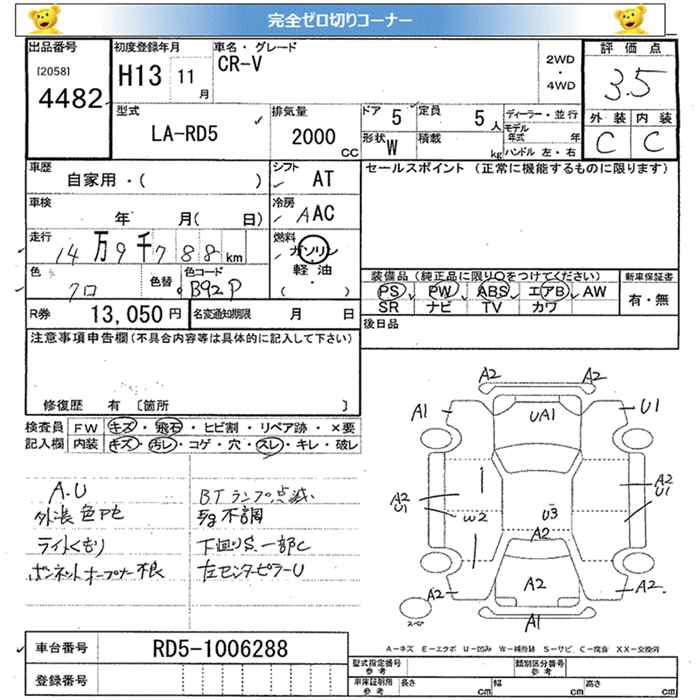 完全ゼロ切りコーナー
出品番号
[2058]
4482
初度登録年月
H13 11月
車名・グレード
CR-V
2WD
・
4WD
評価点
3.5
外装 内装
C C
型式
LA-RD5
排気量
2000 CC
ドア 5
定員 5人
形状 W
積載 kg
ディーラー・並行
モデル年式 年
ハンドル 左・右
車歴
自家用・( )
シフト
AT
車検
年 月( 日)
冷房
AAC
走行
14万9千788km
燃料
ガソリン
軽油
(・)
色
クロ
色替
色コード
B92P
R券 13,050円
名変通知期限 月 日
セールスポイント (正常に機能するものに限ります)
装備品 (純正品に限り〇をつけてください)
PS PW ABS エアB AW
SR ナビ TV カワ
新車保証書
有・無
後日品
注意事項申告欄 (不具合内容等は具体的に記入して下さい)
修復歴 有 〔箇所 〕
検査員記入欄
FW キズ・飛石・ヒビ割・リペア跡・×要
内装 キズ・汚レ・コゲ・穴・スレ・キレ・破レ
A.U
外装色ボセ
ライトくもり
ボンネットオープナー不良
BTランプ点滅
Eg不調
下廻りS一部C
左センターピラーU
A2 A2
A1 U1
UA1
A2 U1
A2 U1
W2
U3
A2
A2
A2 A2
A1
スペア
A-キズ E-エクボ U-凹み W-補修跡 S-サビ C-腐食 XX-交換済
車台番号
RD5-1006288
登録番号
型式指定番号
参考
類別区分番号
参考
車庫証明用
参考
長さ cm
幅 cm
高さ cm